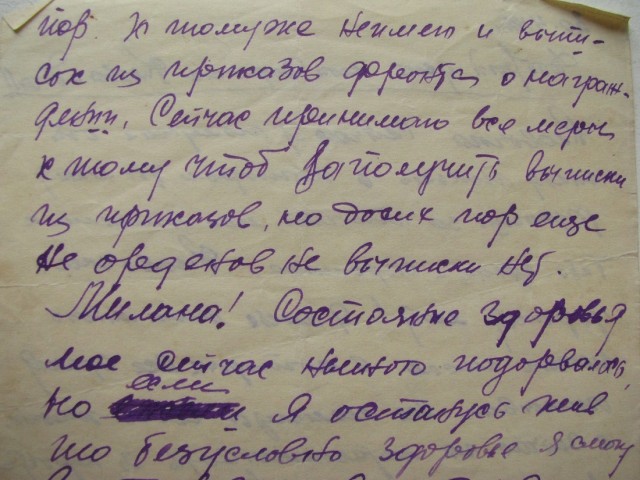 пор. К тому же неимею и выпи-
сок из приказов фронта о награж-
дении. Сейчас принимаю все меры
к тому чтоб Заполучить выписки
из приказов, но досих пор еще
не орденов не выписки нет.
Милана! Состояние здоровья
мое сейчас немного подорвалось,
но если я останусь жив
то безусловно здоровье я смогу